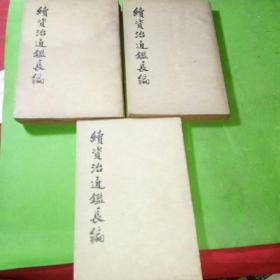 續資治通鑑長編
續資治通鑑長編
續資治通鑑長編